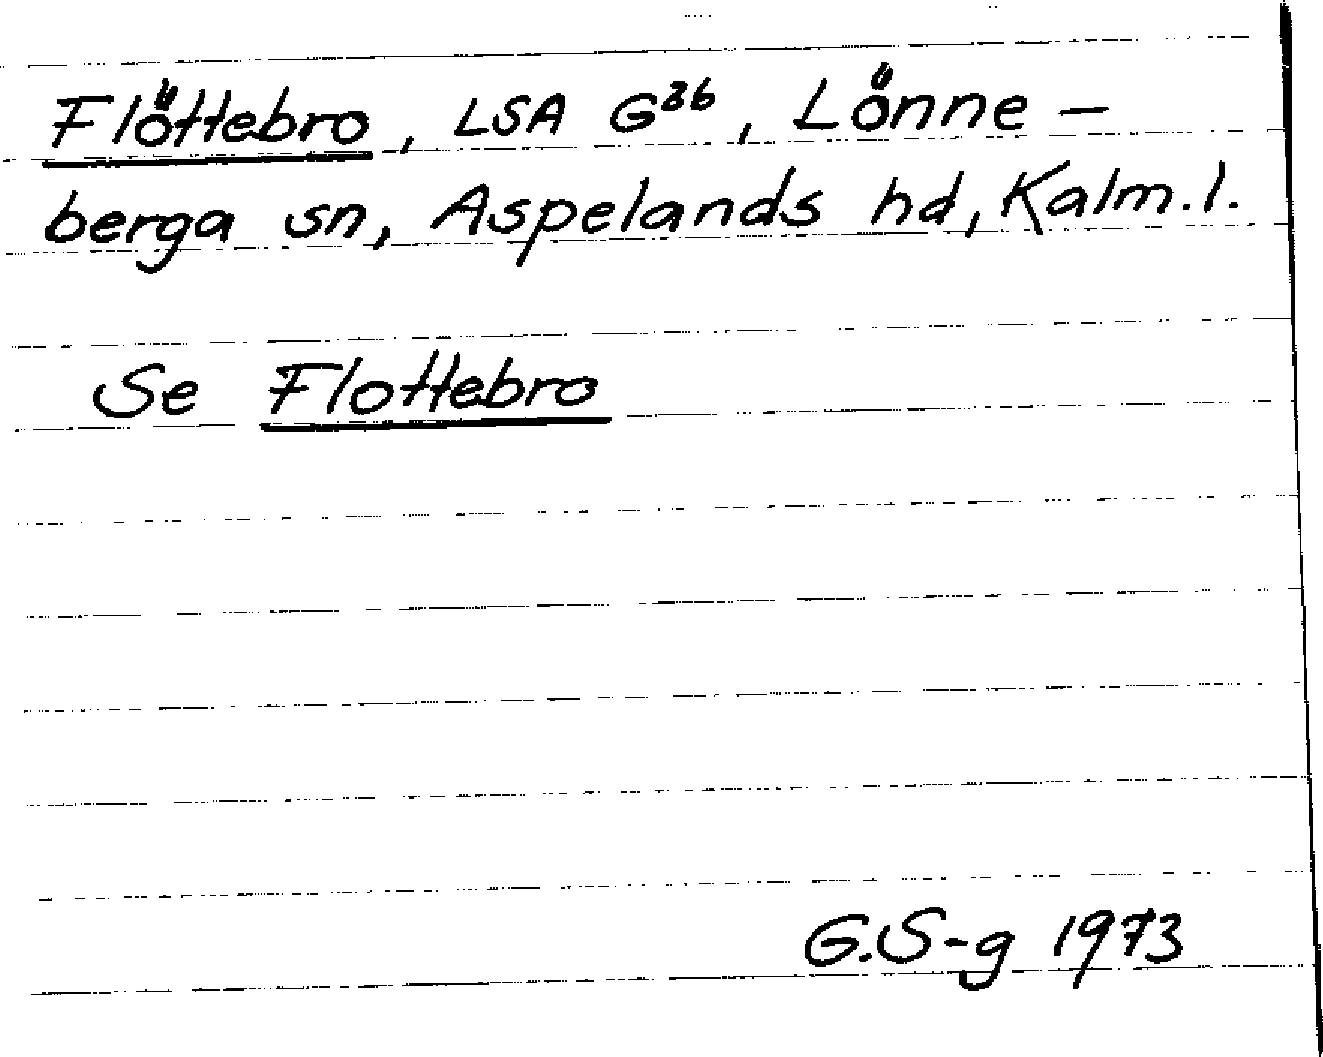 Flöttebro, LSA G²⁶, Lönne-
berga sn, Aspelands hd, Kalm.l.
Se Flottebro
G.S-g 1973